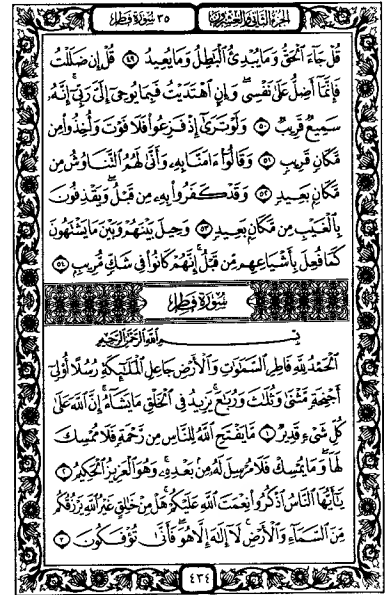 ٣٥ سُورَةُ فَاطِرٍ
الجزء الثاني والعشرون
قُلْ جَاءَ الْحَقُّ وَمَا يُبْدِئُ الْبَاطِلُ وَمَا يُعِيدُ ﴿٤٩﴾ قُلْ إِن ضَلَلْتُ
فَإِنَّمَا أَضِلُّ عَلَىٰ نَفْسِي وَإِنِ اهْتَدَيْتُ فَبِمَا يُوحِي إِلَيَّ رَبِّي إِنَّهُ
سَمِيعٌ قَرِيبٌ ﴿٥٠﴾ وَلَوْ تَرَىٰ إِذْ فَزِعُوا فَلَا فَوْتَ وَأُخِذُوا مِن
مَّكَانٍ قَرِيبٍ ﴿٥١﴾ وَقَالُوا آمَنَّا بِهِ وَأَنَّىٰ لَهُمُ التَّنَاوُشُ مِن
مَّكَانٍ بَعِيدٍ ﴿٥٢﴾ وَقَدْ كَفَرُوا بِهِ مِن قَبْلُ وَيَقْذِفُونَ
بِالْغَيْبِ مِن مَّكَانٍ بَعِيدٍ ﴿٥٣﴾ وَحِيلَ بَيْنَهُمْ وَبَيْنَ مَا يَشْتَهُونَ
كَمَا فُعِلَ بِأَشْيَاعِهِم مِّن قَبْلُ إِنَّهُمْ كَانُوا فِي شَكٍّ مُّرِيبٍ ﴿٥٤﴾
سُورَةُ فَاطِرٍ
بِسْمِ اللَّهِ الرَّحْمَٰنِ الرَّحِيمِ
الْحَمْدُ لِلَّهِ فَاطِرِ السَّمَاوَاتِ وَالْأَرْضِ جَاعِلِ الْمَلَائِكَةِ رُسُلًا أُولِي
أَجْنِحَةٍ مَّثْنَىٰ وَثُلَاثَ وَرُبَاعَ يَزِيدُ فِي الْخَلْقِ مَا يَشَاءُ إِنَّ اللَّهَ عَلَىٰ
كُلِّ شَيْءٍ قَدِيرٌ ﴿١﴾ مَّا يَفْتَحِ اللَّهُ لِلنَّاسِ مِن رَّحْمَةٍ فَلَا مُمْسِكَ
لَهَا وَمَا يُمْسِكْ فَلَا مُرْسِلَ لَهُ مِن بَعْدِهِ وَهُوَ الْعَزِيزُ الْحَكِيمُ ﴿٢﴾
يَا أَيُّهَا النَّاسُ اذْكُرُوا نِعْمَتَ اللَّهِ عَلَيْكُمْ هَلْ مِنْ خَالِقٍ غَيْرُ اللَّهِ يَرْزُقُكُم
مِّنَ السَّمَاءِ وَالْأَرْضِ لَا إِلَٰهَ إِلَّا هُوَ فَأَنَّىٰ تُؤْفَكُونَ ﴿٣﴾
٤٣٤